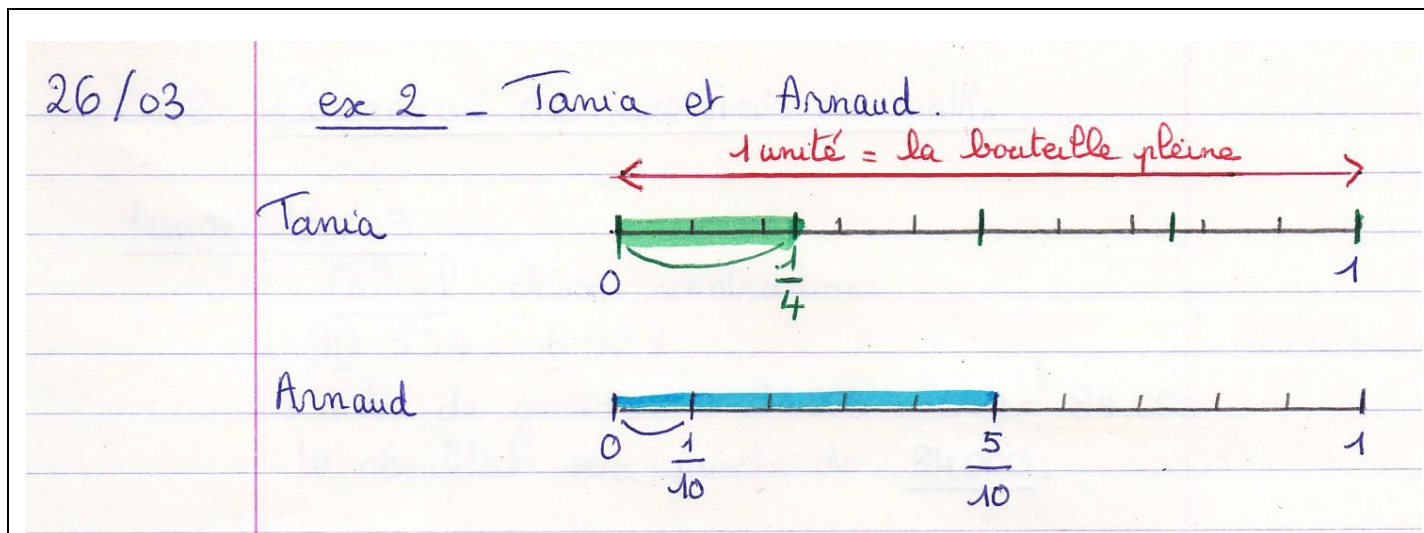 26/03 ex 2 - Tania et Arnaud.
1 unité = la bouteille pleine
Tania
0 1/4 1
Arnaud
0 1/10 5/10 1